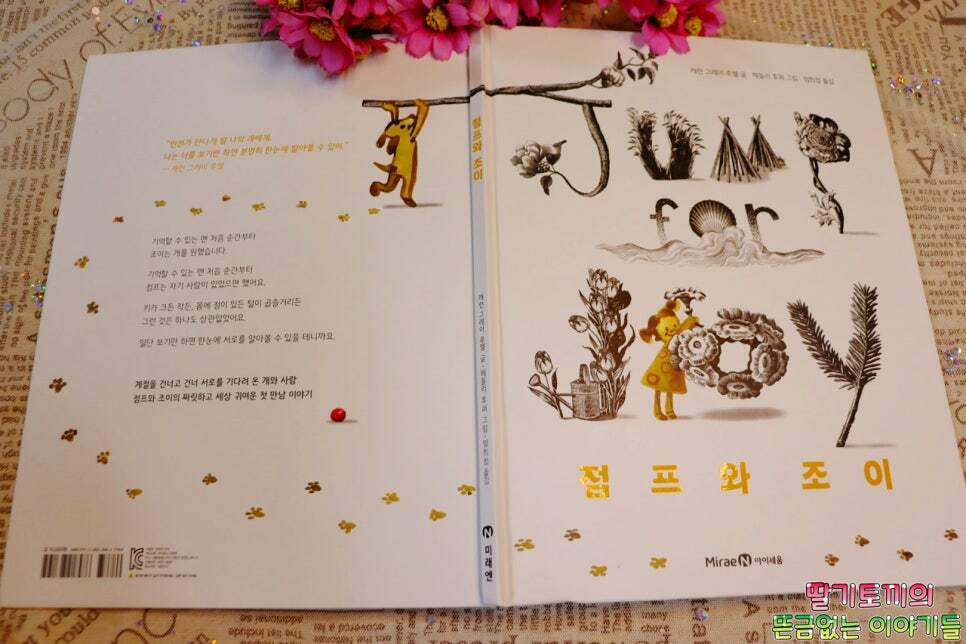 "언젠가 만나게 될 나의 개에게
나는 너를 보기만 하면 분명히 한눈에 알아볼 수 있어."
— 캐런 그레이 루엘
기억할 수 있는 맨 처음 순간부터
조이는 개를 원했습니다.
기억할 수 있는 맨 처음 순간부터
점프는 자기 사람이 있었으면 했어요.
키가 크든 작든, 몸에 점이 있든 털이 곱슬거리든
그런 것은 하나도 상관없었어요.
일단 보기만 하면 한눈에 서로를 알아볼 수 있을 테니까요.
계절을 건너고 건너 서로를 기다려 온 개와 사람
점프와 조이의 짜릿하고 세상 귀여운 첫 만남 이야기
점프와 조이
캐런 그레이 루엘 글 · 해들리 후퍼 그림 · 엄희정 옮김
미래엔
캐런 그레이 루엘 글 해들리 후퍼 그림 엄희정 옮김
JUMP
for
JOY
점프와 조이
MiraeN 아이세움
딸기토끼의
뜬금없는 이야기들